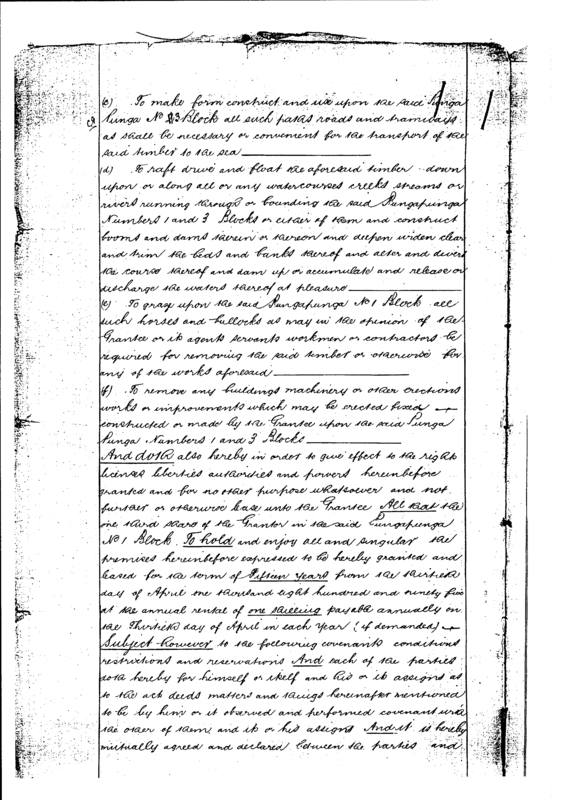 (c) To make form construct and use upon the said Punga
Punga No 3 Block all such paths roads and tramways
as shall be necessary or convenient for the transport of the
said timber to the sea
(d) To raft drive and float the aforesaid timber down
upon or along all or any watercourses creeks streams or
rivers running through or bounding the said Pungapunga
Numbers 1 and 3 Blocks or either of them and construct
booms and dams therein or thereon and deepen widen clear
and trim the beds and banks thereof and alter and divert
the course thereof and dam up or accumulate and release or
discharge the waters thereof at pleasure
(e) To graze upon the said Pungapunga No 1 Block all
such horses and bullocks as may in the opinion of the
Grantee or its agents servants workmen or contractors be
required for removing the said timber or otherwise for
any of the works aforesaid
(f) To remove any buildings machinery or other erections
works or improvements which may be erected fixed or
constructed or made by the Grantee upon the said Punga
Punga Numbers 1 and 3 Blocks
And doth also hereby in order to give effect to the rights
licenses liberties authorities and powers hereinbefore
granted and for no other purpose whatsoever and not
further or otherwise lease unto the Grantee All that the
one third share of the Grantor in the said Pungapunga
No 1 Block To hold and enjoy all and singular the
premises hereinbefore expressed to be hereby granted and
leased for the term of Fifteen years from the thirtieth
day of April one thousand eight hundred and ninety five
at the annual rental of one shilling payable annually on
the Thirtieth day of April in each year (if demanded)
Subject however to the following covenants conditions
restrictions and reservations And each of the parties
doth hereby for himself or itself and his or its assigns as
to the acts deeds matters and things hereinafter mentioned
to be by him or it observed and performed covenant with
the other of them and its or his assigns And it is hereby
mutually agreed and declared between the parties and